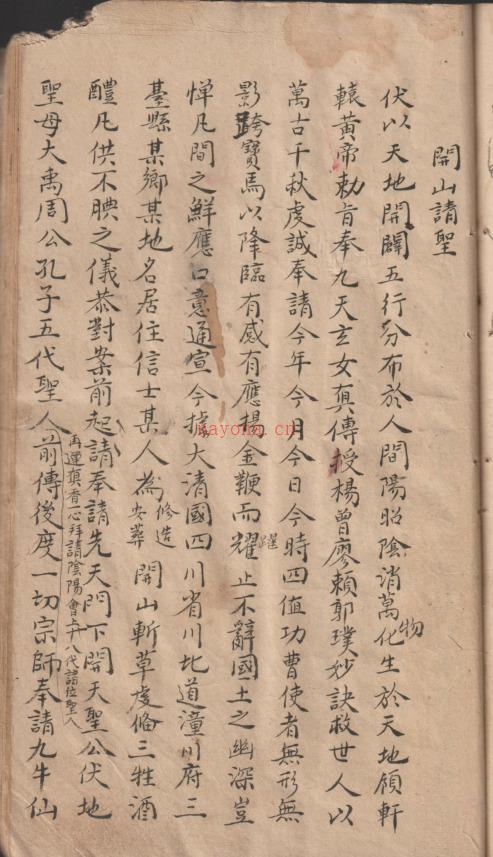 開山請聖
伏以天地開闢五行分布於人間陽昭陰消萬物化生於天地領軒
轅黃帝勅旨奉九天玄女真傳授楊曾廖賴郭璞妙訣救世人以
萬古千秋虔誠奉請今年今月今日今時四值功曹使者無形無
影跨寶馬以降臨有感有應揚金鞭而耀躍止不辭國土之幽深豈
憚凡間之鮮應口意通宣今據大清國四川省川北道潼川府三
臺縣某鄉某地名居住信士某人為修造安葬開山斬草虔俻三牲酒
醴凡供不腆之儀恭對案前起請奉請先天門下開天聖公伏地
聖母大禹周公孔子五代聖人前傳後度一切宗師奉請九牛仙
再運槓者一心拜請陰陽會上十八代諸位聖人
nayona.cn